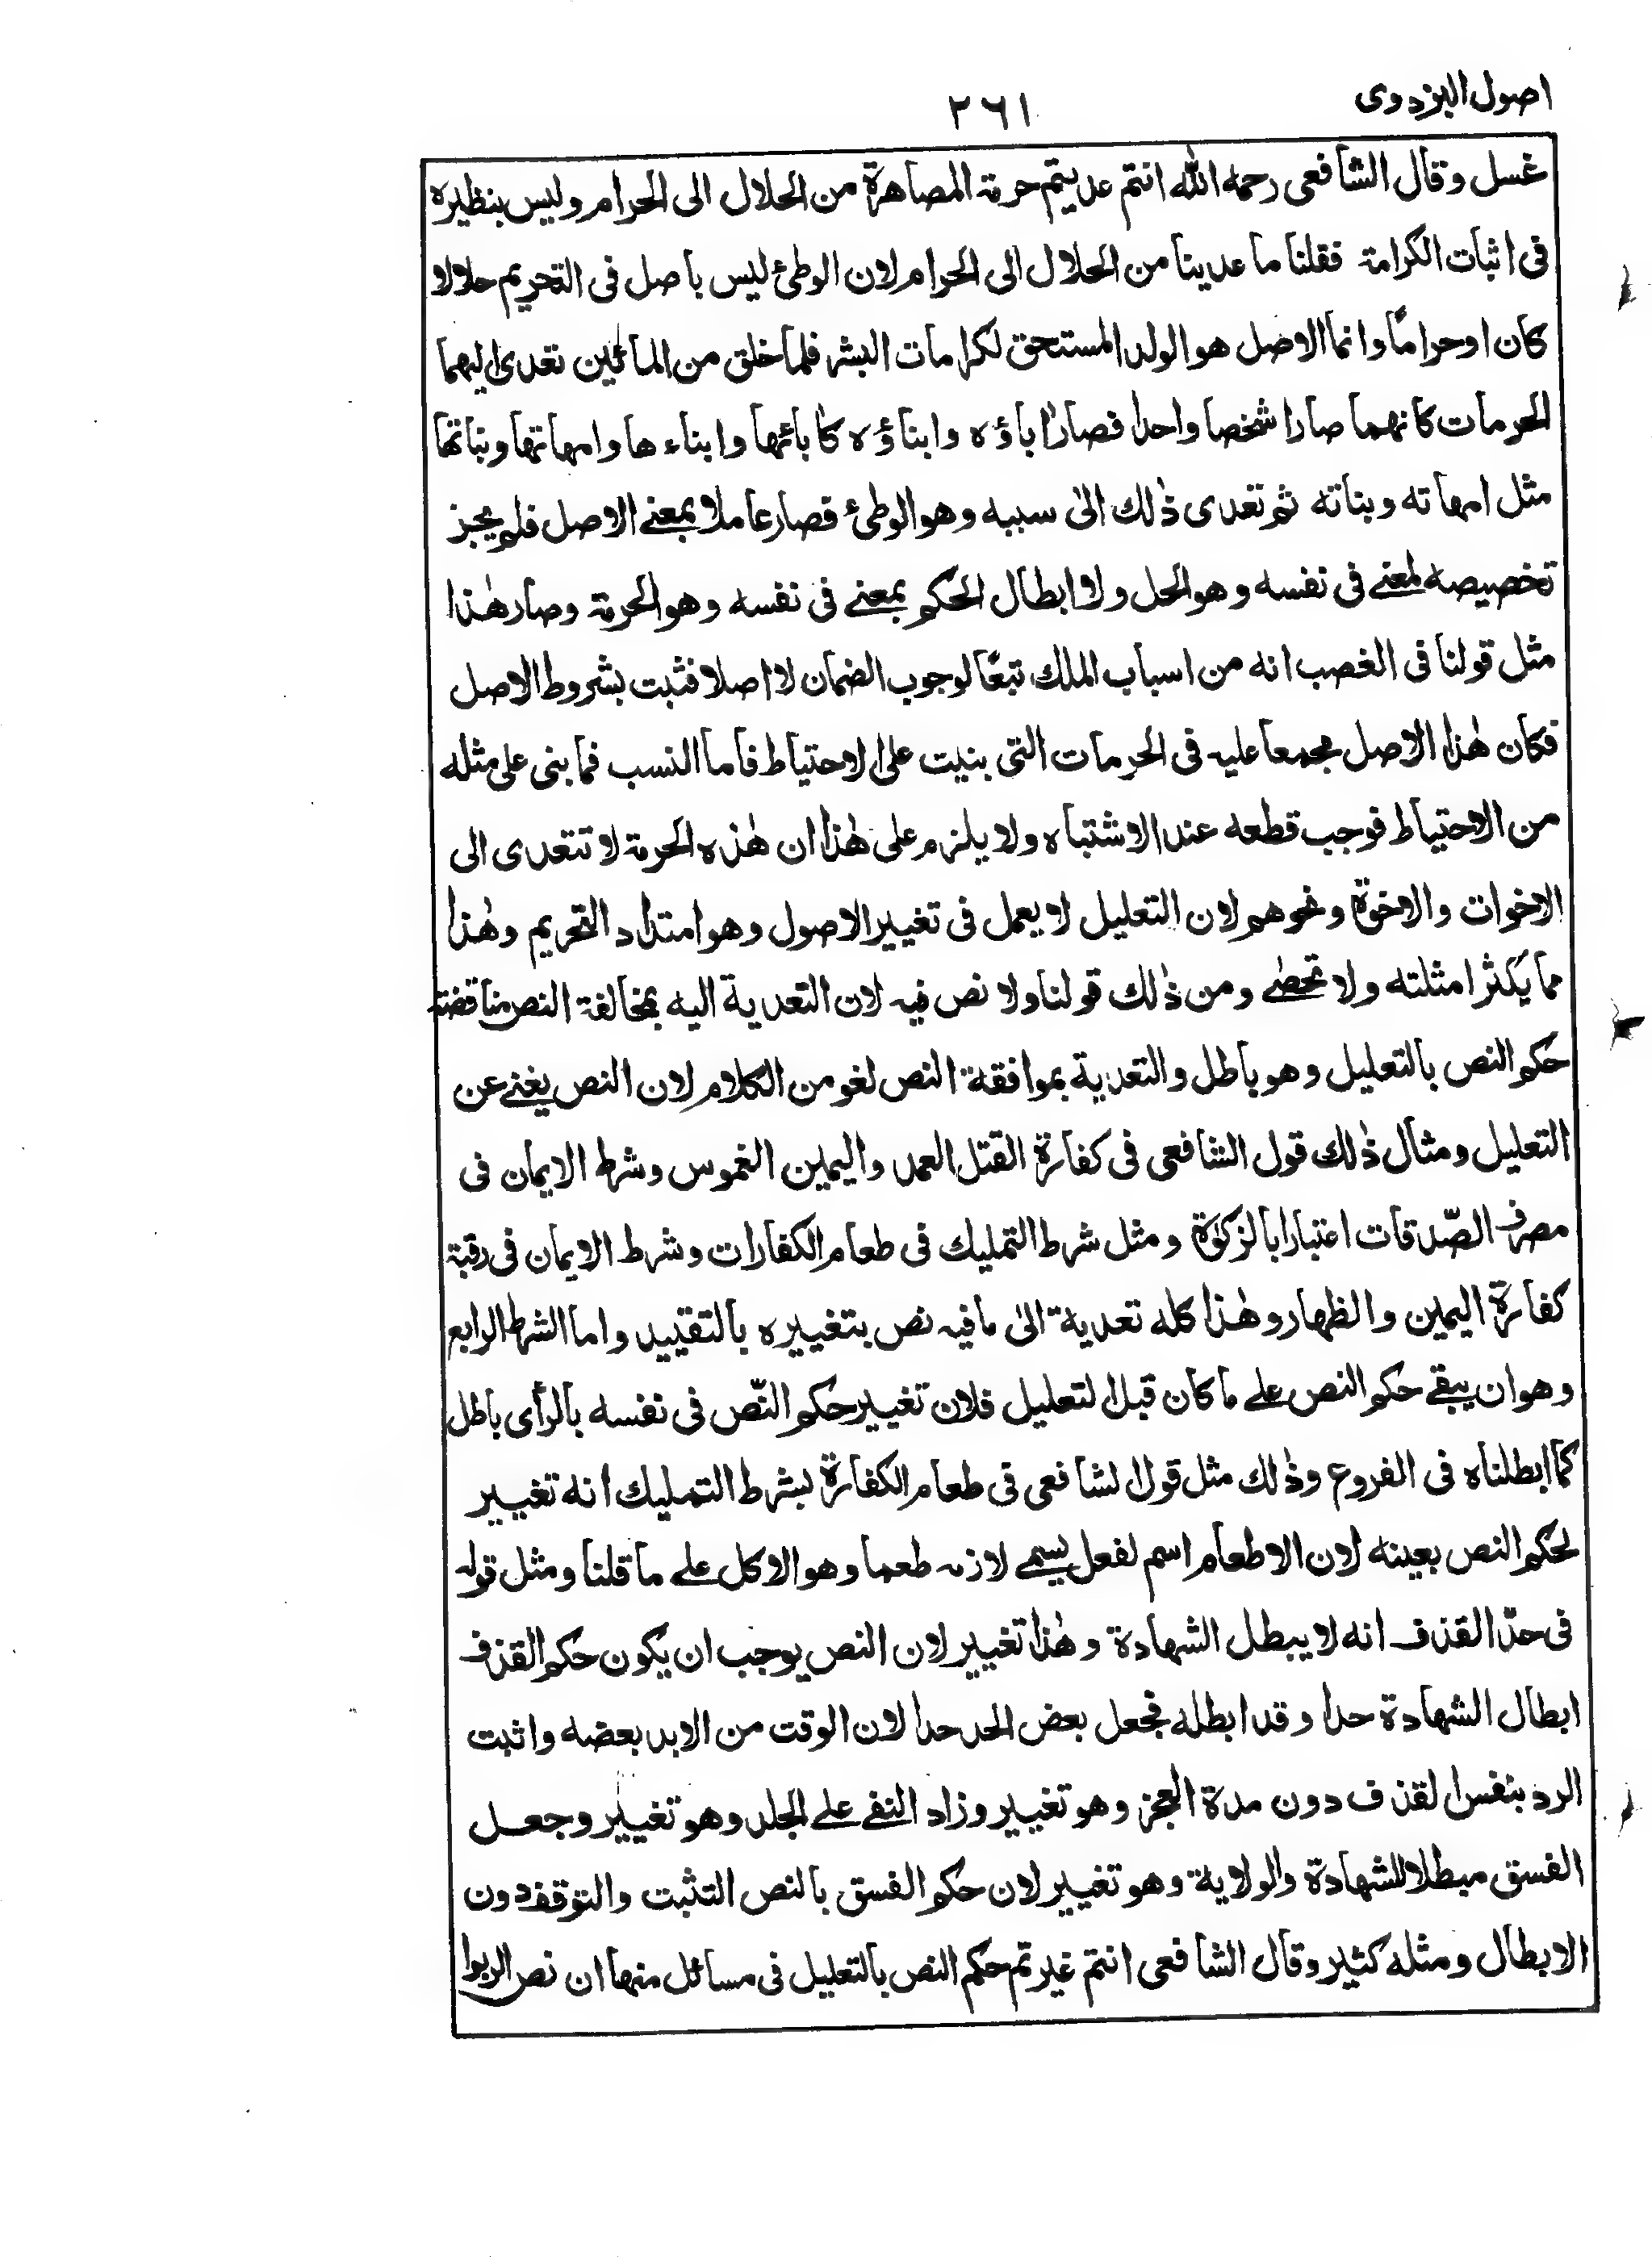 اصول البزدوى
٢٦١
غسل وقال الشافعى رحمه الله انتم عديتم حرمة المصاهرة من الحلال الى الحرام وليس بنظيره
فى اثبات الكرامة فقلنا ما عدينا من الحلال الى الحرام لان الوطئ ليس باصل فى التحريم حلالا
كان او حراماً وانما الاصل هو الولد المستحق لكرامات البشر فلما خلق من المائين تعدى اليهما
الحرمات كانهما صارا شخصا واحدا فصار اٰباؤه وابناؤه كاٰبائها وابناءها وامهاتها وبناتها
مثل امهاته وبناته ثم تعدى ذٰلك الىٰ سببه وهو الوطئ فصار عاملا بمعنے الاصل فلم يجز
تخصيصه لمعنے فى نفسه وهو الحل ولا ابطال الحكم بمعنے فى نفسه وهو الحرمة وصار هٰذا
مثل قولنا فى الغصب انه من اسباب الملك تبعًا لوجوب الضمان لا اصلا فثبت بشروط الاصل
فكان هٰذا الاصل مجمعا عليه فى الحرمات التى بنيت على الاحتياط فاما النسب فما بنى على مثله
من الاحتياط فوجب قطعه عند الاشتباه ولا يلزم على هٰذا ان هٰذه الحرمة لا تتعدى الى
الاخوات والاخوة ونحوهم لان التعليل لا يعمل فى تغيير الاصول وهو امتداد التحريم وهٰذا
مما يكثر امثلته ولا تحصٰے ومن ذٰلك قولنا ولا نص فيه لان التعدية اليه بمخالفة النص مناقضة
حكم النص بالتعليل وهو باطل والتعدية بموافقة النص لغو من الكلام لان النص يغنے عن
التعليل ومثال ذٰلك قول الشافعى فى كفارة القتل العمد واليمين الغموس وشرط الايمان فى
مصرف الصّدقات اعتبارا بالزكوٰة ومثل شرط التمليك فى طعام الكفارات وشرط الايمان فى رقبة
كفارة اليمين والظهار وهٰذا كله تعدية الىٰ ما فيه نص بتغييره بالتقييد واما الشرط الرابع
وهو ان يبقے حكم النص علے ما كان قبل التعليل فلان تغيير حكم النّص فى نفسه بالرأى باطل
كما ابطلناه فى الفروع وذٰلك مثل قول الشافعى فى طعام الكفارة بشرط التمليك انه تغيير
لحكم النص بعينه لان الاطعام اسم لفعل يسمے لازمه طعما وهو الاكل علے ما قلنا ومثل قوله
فى حدّ القذف انه لا يبطل الشهادة وهٰذا تغيير لان النص يوجب ان يكون حكم القذف
ابطال الشهادة حدا وقد ابطله فجعل بعض الحد حدا لان الوقت من الابد بعضه واثبت
الرد بنفس القذف دون مدة العجز وهو تغيير وزاد النفے علے الجلد وهو تغيير وجعل
الفسق مبطلا للشهادة والولاية وهو تغيير لان حكم الفسق بالنص التثبت والتوقف دون
الابطال ومثله كثير وقال الشافعى انتم غيرتم حكم النص بالتعليل فى مسائل منها ان نص الربوا